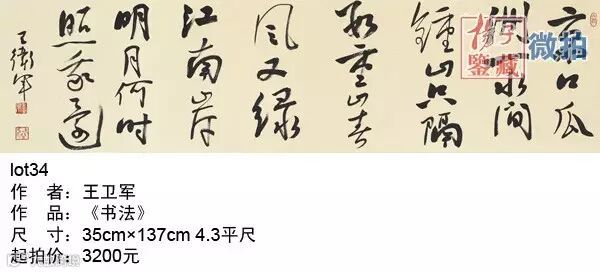 京口瓜
洲一水间
鍾山只隔
数重山春
风又绿
江南岸
明月何时
照我还
王卫军
微拍
鑒藏
lot34
作 者：王卫军
作 品：《书法》
尺 寸：35cm×137cm 4.3平尺
起拍价：3200元